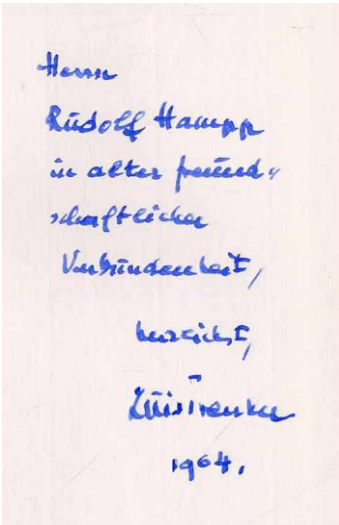 Herrn
Rudolf Hampp
in alter freund-
schaftlicher
Verbundenheit,
herzlichst,
Luis Trenker
1964.